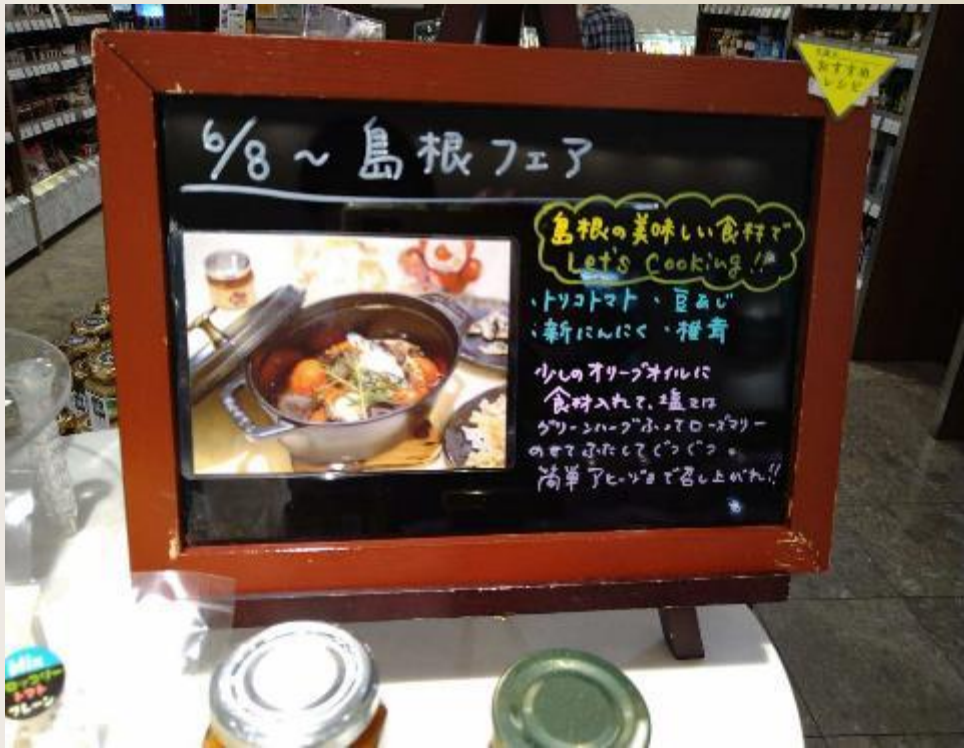 おすすめ
レシピ
6/8～島根フェア
島根の美味しい食材で
Let's Cooking!!
・トリコトマト ・豆あじ
・新にんにく ・椎茸
少しのオリーブオイルに
食材入れて、塩又は
グリーンハーブふってローズマリー
のせてふたしてぐつぐつ。
簡単アヒージョで召し上がれ!!
Mix
トマト
プレーン